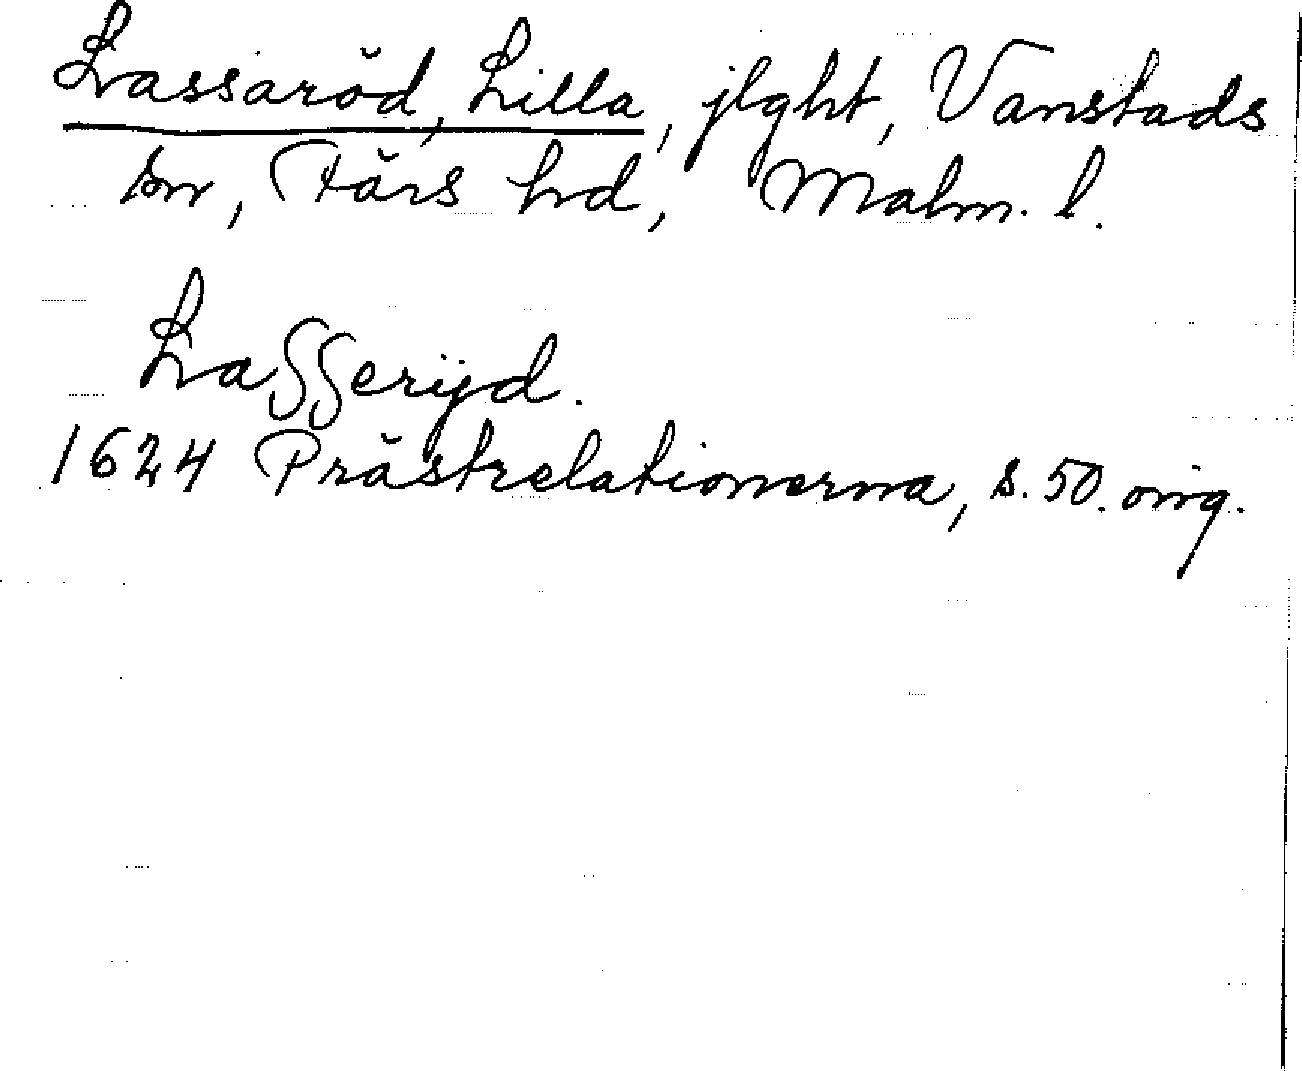 Lassaröd, Lilla, jlght, Vanstads
sn, Färs hd, Malm. l.
Lasserijd.
1624 Prästrelationerna, s. 50. orig.